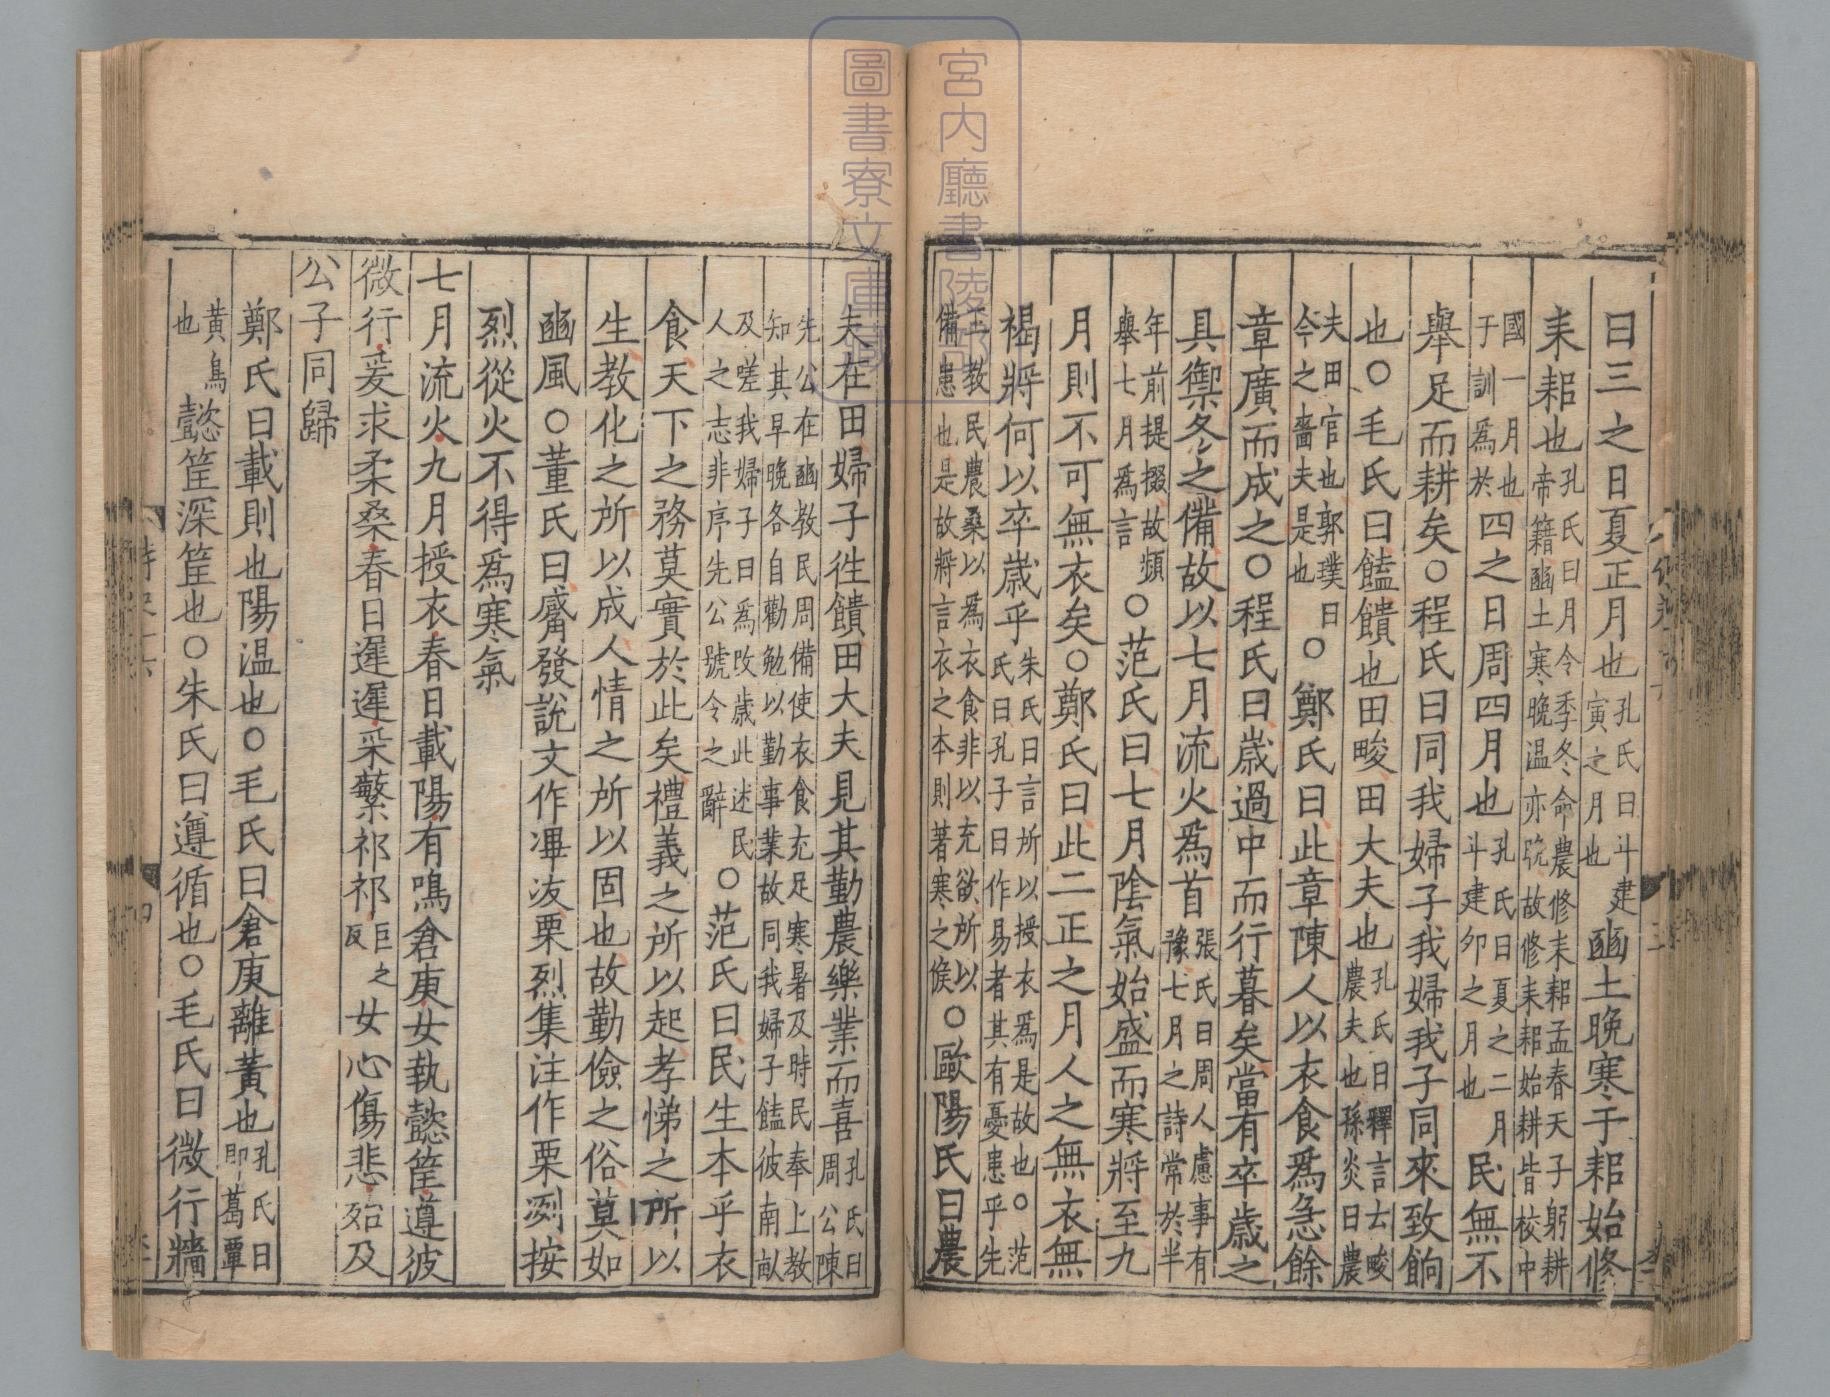 日三之日夏正月也孔氏曰斗建寅之月也豳土晚寒于耜始修
耒耜也孔氏曰月令季冬命農修耒耜孟春天子躬耕帝籍豳土寒晚温亦晚故修耒耜始耕皆校中
國一月也于訓爲於四之日周四月也孔氏曰夏之二月斗建卯之月也民無不
舉足而耕矣○程氏曰同我婦子我婦我子同來致餉
也○毛氏曰饁饋也田畯田大夫也孔氏曰釋言云畯農夫也孫炎曰農
夫田官也郭璞曰今之嗇夫是也○鄭氏曰此章陳人以衣食爲急餘
章廣而成之○程氏曰歲過中而行暮矣當有卒歲之
具禦冬之備故以七月流火爲首張氏曰周人慮事有豫七月之詩常於半
年前提掇故頻舉七月爲言○范氏曰七月陰氣始盛而寒將至九
月則不可無衣矣○鄭氏曰此二正之月人之無衣無
褐將何以卒歲乎朱氏曰言所以授衣爲是故也○范氏曰孔子曰作易者其有憂患乎先
王教民農桑以爲衣食非以充欲所以備患也是故將言衣之本則著寒之候○歐陽氏曰農
夫在田婦子徃饋田大夫見其勤農樂業而喜孔氏曰周公陳
先公在豳教民周備使衣食充足寒暑及時民奉上教知其早晚各自勸勉以勤事業故同我婦子饁彼南畝
及嗟我婦子曰爲改歲此述民人之志非序先公號令之辭○范氏曰民生本乎衣
食天下之務莫實於此矣禮義之所以起孝悌之所以
生教化之所以成人情之所以固也故勤儉之俗莫如
豳風○董氏曰觱發說文作滭冹栗烈集注作栗冽按
烈從火不得爲寒氣
七月流火九月授衣春日載陽有鳴倉庚女執懿筐遵彼
微行爰求柔桑春日遲遲采蘩祁祁巨之反女心傷悲殆及
公子同歸
鄭氏曰載則也陽温也○毛氏曰倉庚離黃也孔氏曰即葛覃
黃鳥也懿筐深筐也○朱氏曰遵循也○毛氏曰微行牆
宮内廳書陵部
圖書寮文庫